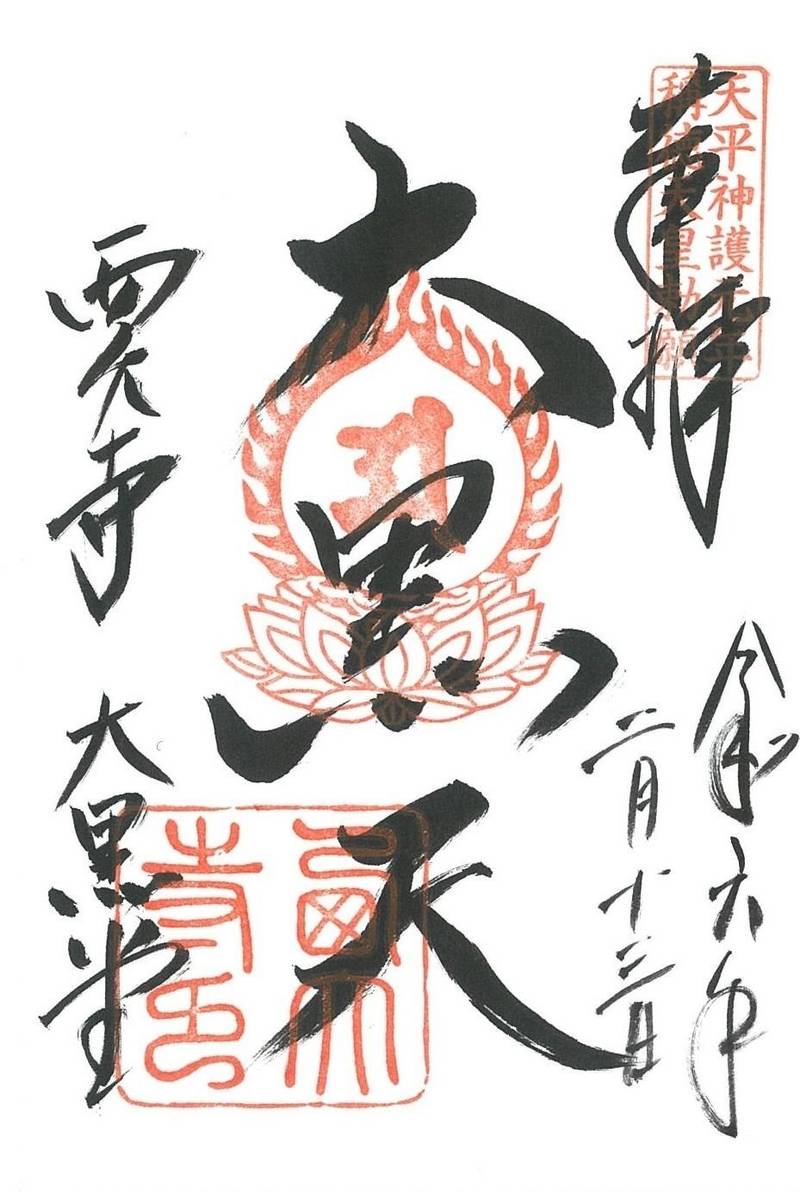 天平神護元年
稱德天皇勅願
奉拝
令和六年
二月十三日
大黒天
西大寺
大黒堂
西大
寺印